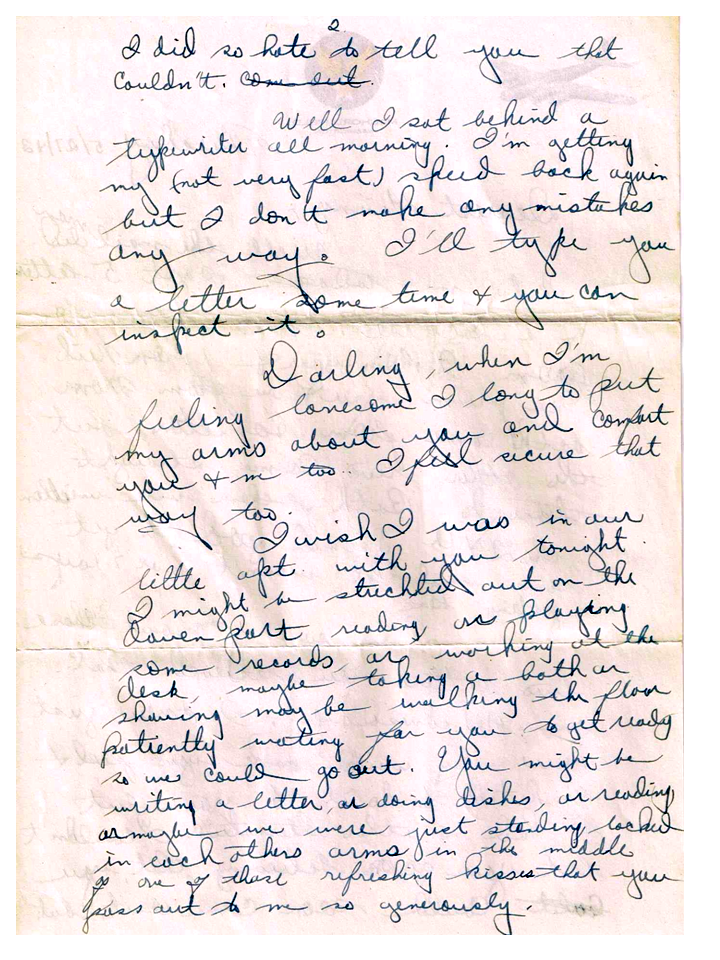 2
I did so hate to tell you that
couldn't. come out.
Well I sat behind a
typewriter all morning. I'm getting
my (not very fast) speed back again
but I don't make any mistakes
any way. I'll type you
a letter some time & you can
inspect it.
Darling, when I'm
feeling lonesome I long to put
my arms about you and comfort
you & m too. I feel secure that
way too.
I wish I was in our
little apt. with you tonight.
I might be strechted out on the
davenport reading or playing
some records, or working at the
desk, maybe taking a bath or
shaving may be walking the floor
patiently waiting for you to get ready
so we could go out. You might be
writing a letter, or doing dishes, or reading,
or maybe we were just standing locked
in each others arms in the middle
one of those refreshing kisses that you
pass out to me so generously.